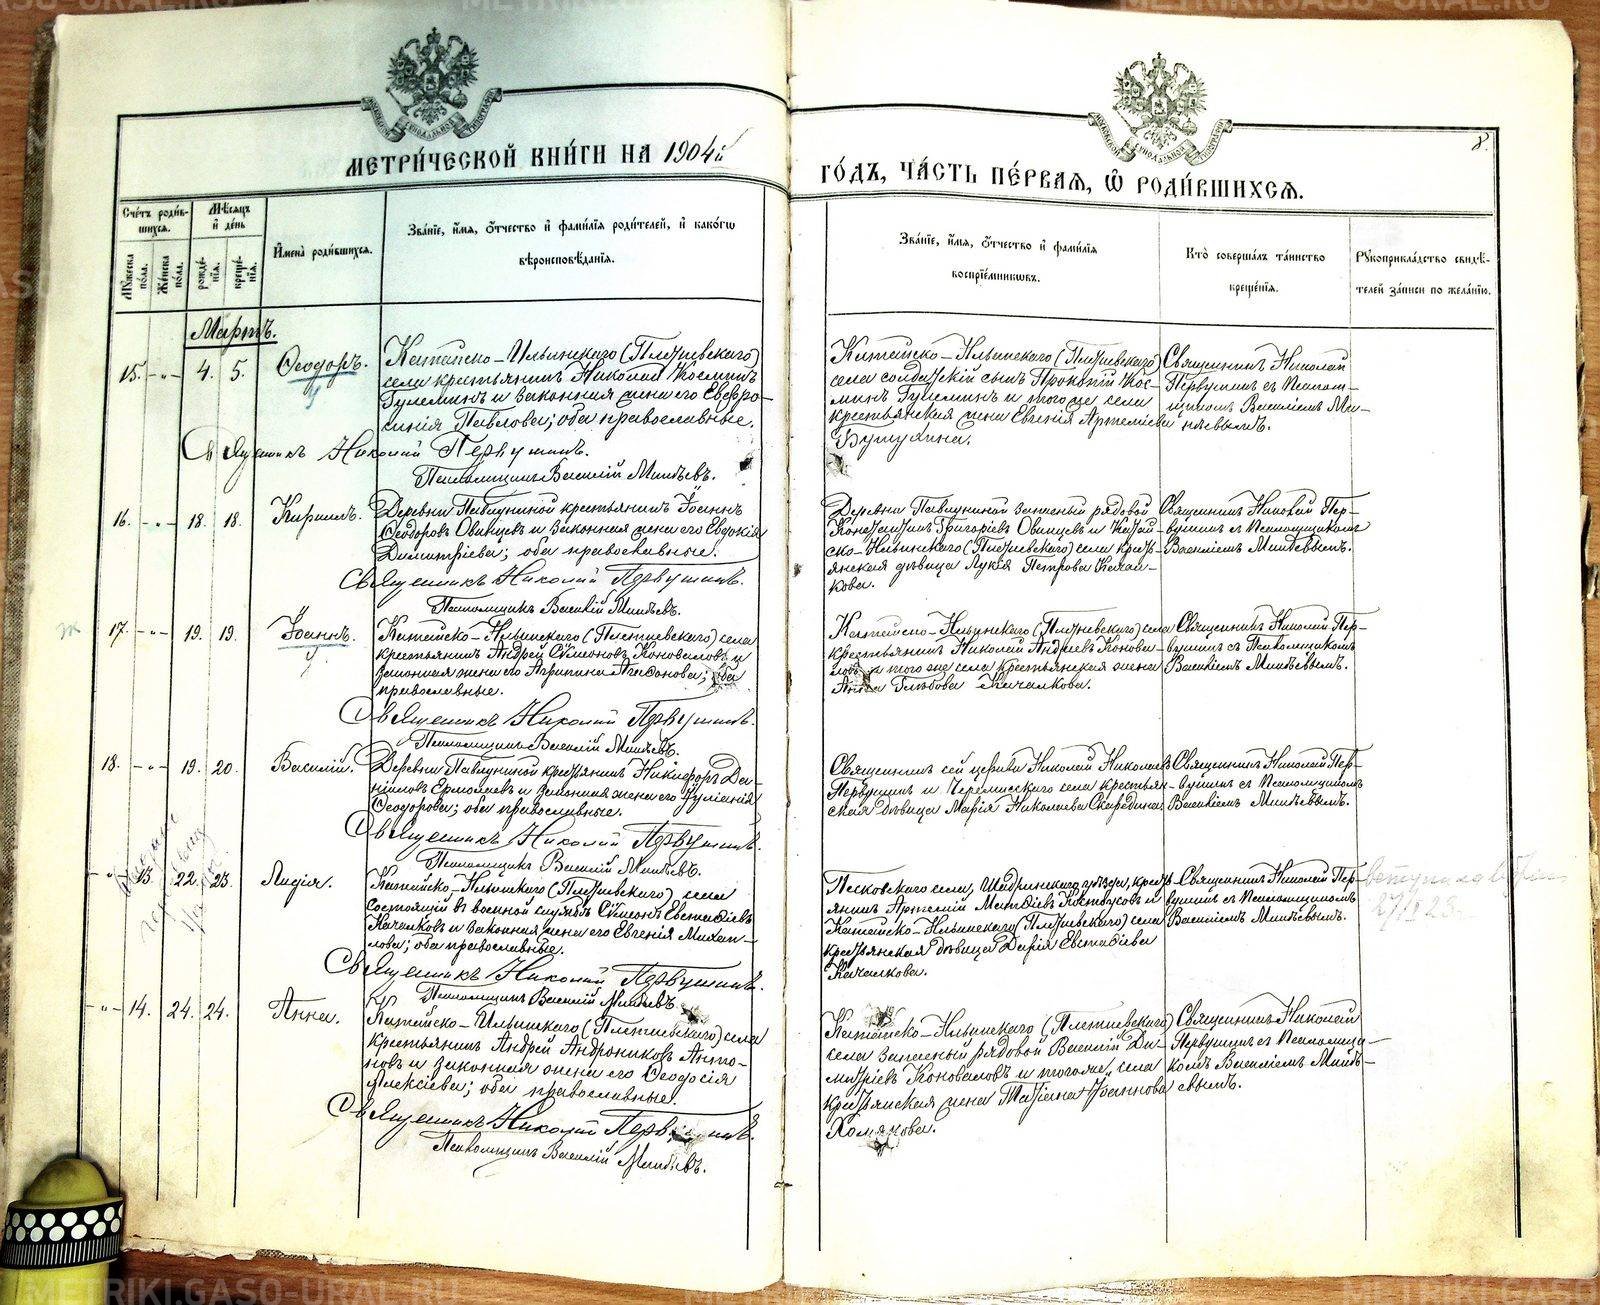 МЕТРИ́ЧЕСКОЙ КНИ́ГИ НА 1904й
ГО́ДЪ, ЧА́СТЬ ПЕ́РВАЯ, Ѡ РОДИ́ВШИХСЯ.
8.
Счетъ роди́вшихся.
Му́жеска по́ла.
Же́нска по́ла.
Мѣ́сяцъ и де́нь
рожде́нія.
креще́нія.
Имена̀ роди́вшихся.
Зва́ніе, и́мя, о́тчество и фами́лія роди́телей, и како́гѡ
вѣроисповѣ́данія.
Зва́ніе, и́мя, о́тчество и фами́лія
воспріе́мниковъ.
Кто̀ соверша́лъ та́инство
креще́нія.
Рукоприкла́дство свидѣ́-
телей за́писи по жела́нію.
Мартъ.
15. -"- 4. 5. Ѳеодоръ.
Катайско-Ильинскаго (Плотневскаго)
села крестьянинъ Николай Косминъ
и законная жена его Евфро-
синія Павлова; оба православные.
Священникъ Николай Первушинъ.
Псаломщикъ Василій Минѣевъ.
села солдатскій сынъ Прокопій Кос-
минъ и того же села
крестьянская жена Евгенія Артеміева
Священникъ Николай
Первушинъ съ Псалом-
щикомъ Василіемъ Ми-
нѣевымъ.
16. -"- 18. 18. Кириллъ.
Деревни крестьянинъ Іоаннъ
Ѳеодоровъ и законная жена его Евдокія
Димитріева; оба православные.
Священникъ Николай Первушинъ.
Псаломщикъ Василій Минѣевъ.
Деревни запасный рядовой
Константинъ Григоріевъ и Катай-
ско-Ильинскаго села кресть-
янская дѣвица Лукія Петрова Качал-
кова.
Священникъ Николай Пер-
вушинъ съ Псаломщикомъ
Василіемъ Минѣевымъ.
17. -"- 19. 19. Іоаннъ.
Катайско-Ильинскаго села
крестьянинъ Андрей Сѵмеоновъ Коноваловъ и
законная жена его Агрипина Агафонова; оба
православные.
Священникъ Николай Первушинъ.
Псаломщикъ Василій Минѣевъ.
Катайско-Ильинскаго села
крестьянинъ Николай Андреевъ Конова-
ловъ и того же села крестьянская жена
Анна Глѣбова Качалкова.
Священникъ Николай Пер-
вушинъ съ Псаломщикомъ
Василіемъ Минѣевымъ.
18. -"- 19. 20. Василій.
Деревни крестьянинъ Никифоръ Да-
ніиловъ Ермолаевъ и законная жена его Іуліанія
Ѳеодорова; оба православные.
Священникъ Николай Первушинъ.
Псаломщикъ Василій Минѣевъ.
Священникъ сей церкви Николай Николаевъ
Первушинъ и села крестьян-
ская дѣвица Марія Николаева
Священникъ Николай Пер-
вушинъ съ Псаломщикомъ
Василіемъ Минѣевымъ.
-"- 13. 22. 23. Лидія.
Катайско-Ильинскаго села
состоящій въ военной службѣ Сѵмеонъ Евстафіевъ
Качалковъ и законная жена его Евгенія Михай-
лова; оба православные.
Священникъ Николай Первушинъ.
Псаломщикъ Василій Минѣевъ.
Песковскаго села, Шадринскаго уѣзда, кресть-
янинъ Артемій Матфіевъ и
Катайско-Ильинскаго села
крестьянская дѣвица Дарія Евстафіева
Качалкова.
Священникъ Николай Пер-
вушинъ съ Псаломщикомъ
Василіемъ Минѣевымъ.
-"- 14. 24. 24. Анна.
Катайско-Ильинскаго села
крестьянинъ Андрей Андрониковъ Анто-
новъ и законная жена его Ѳеодосія
Алексіева; оба православные.
Священникъ Николай Первушинъ.
Псаломщикъ Василій Минѣевъ.
Катайско-Ильинскаго
села запасный рядовой Василій Ди-
митріевъ Коноваловъ и того же села
крестьянская жена Татіана Іоаннова
Хомякова.
Священникъ Николай
Первушинъ съ Псаломщи-
комъ Василіемъ Минѣ-
евымъ.
METRIKI.GASO-URAL.RU